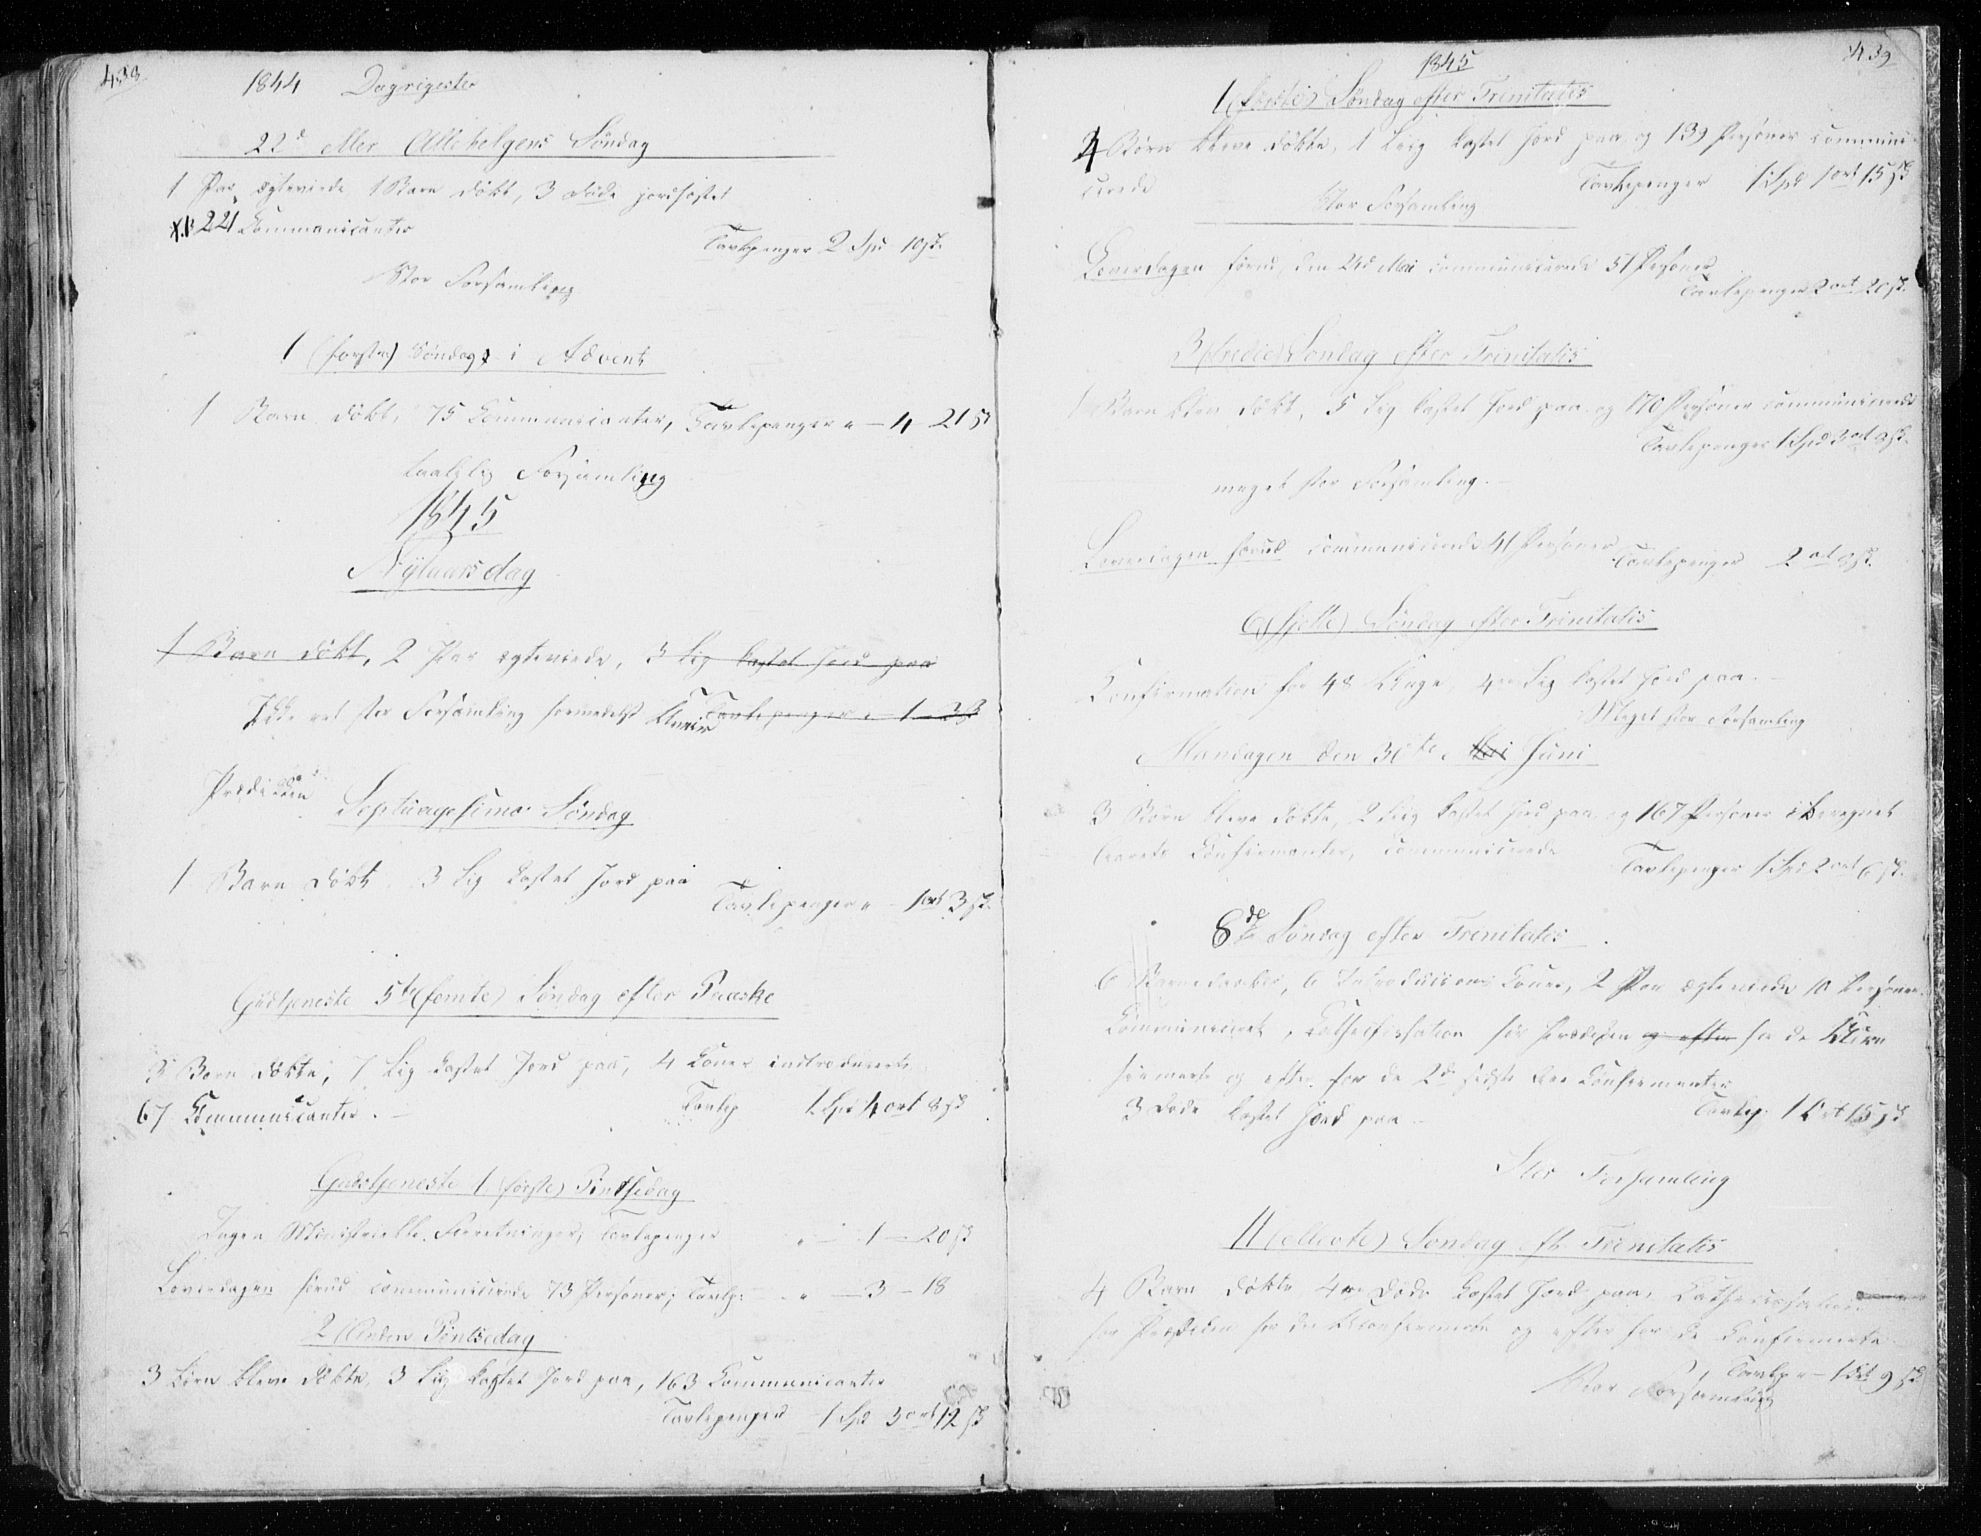 438
1844 Dagrigester
22d eller Allehelgens Søndag
1 Par ægteviede 1 Barn døbt, 3 døde jordfæstet
221 Communicanter
Tavlepenger 2 Spd 10 sk.
Stor Forsamling
1 (første) Søndag i Advent
1 Barn døbt, 75 Communicanter, Tavlepenger " — 4 — 21 sk
taalelig Forsamling
1845
Nytaarsdag
1 Barn døbt, 2 Par ægteviede, 3 Lig kastet Jord paa
Ikke ret stor Forsamling formedelst Tavlepenger " — 1 — 3 sk
Prædiken
Septuagesima Søndag
1 Barn døbt, 3 Lig kastet Jord paa
Tavlepenger " — 1 ort 3 sk.
Gudtjeneste 5te (femte) Søndag efter Paaske
3 Børn døbte, 7 Lig kastet Jord paa, 4 Koner introducerte
67 Communicanter.
Tavlep 1 Spd 4 ort 8 sk
Gudstjeneste 1 (første) Pintsedag
Ingen Ministerielle Forretninger, Tavlepenger " — 1 — 20 sk
Løverdagen forud communicerede 73 Personer; Tavlp: " — 3 — 18
2 (Anden Pintsedag
3 Børn bleve døbte, 3 Lig kastet Jord paa, 163 Communicanter
Tavlepenger 1 Spd 3 ort 12 sk
439
1845
1 (første) Søndag efter Trinitatis
4 Børn bleve døbte, 1 Liig kastet Jord paa og 139 Personer communi-
cerede Tavlepenger 1 Spd 1 ort 15 sk
Stor Forsamling
Løverdagen forud, den 24d Mai communicerede 51 Personer
Tavlepenger 2 ort 20 sk.
3 (tredie) Søndag efter Trinitatis
1 Barn blev døbt, 5 Lig kastet Jord paa og 170 Personer communicerede
Tavlepenger 1 Spd 3 ort 8 sk.
meget stor Forsamling.
Løverdagen forud communicerede 41 Personer
Tavlepenger 2 ort 8 sk.
6 (sjette) Søndag efter Trinitatis
Confirmation for 48 Unge, 4re Lig kastet Jord paa.
Meget stor Forsamling
Mandagen den 30te Mai Juni
3 Børn bleve døbte, 2 Liig kastet Jord paa og 167 Personer iberegnet
Confirmanter, communicerede
Tavlepenger 1 Spd 2 ort 6 sk.
8de Søndag efter Trinitatis
6 Barnedaaber, 6 Introductions Koner, 2 Par ægteviede 10 Personer
Communiceret, Catechisation før Prædiken og efter for de
og efter for de 2de sidste Confirmanter
3 Døde kastet Jord paa
Tavlep: 1 Ort 15 sk
Stor Forsamling
11 (ellevte) Søndag eft Trinitatis
4 Børn døbte 4re Døde kastet Jord paa, Catechisation
før Prædiken for de Uconfirmerte og efter for de Confirmerte
Tavlep " — 1 Ort 9 sk
Stor Forsamling